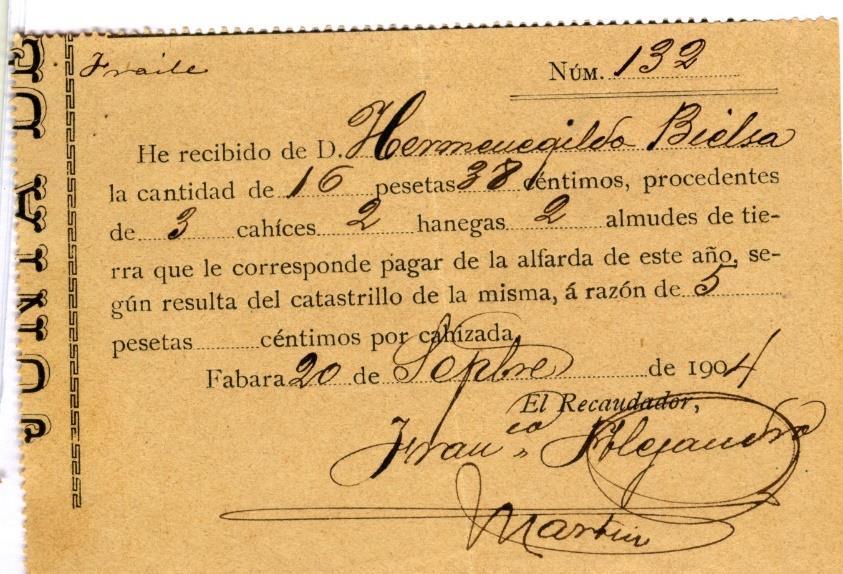 JUNTA DE
Fraile
NÚM. 132
He recibido de D. Hermenegildo Bielsa
la cantidad de 16 pesetas 38 céntimos, procedentes
de 3 cahíces 2 hanegas 2 almudes de tie-
rra que le corresponde pagar de la alfarda de este año, se-
gún resulta del catastrillo de la misma, á razón de 5
pesetas céntimos por cahizada
Fabara 20 de Sepbre de 1904
El Recaudador,
Franco Alejandro
Martin